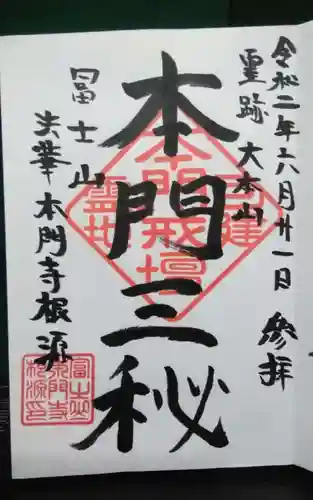 令和二年六月廿一日 參拝
霊跡 大本山
本門三秘
冨士山
法華本門寺根源
本門戒壇
霊地
冨士山
本門寺
根源印